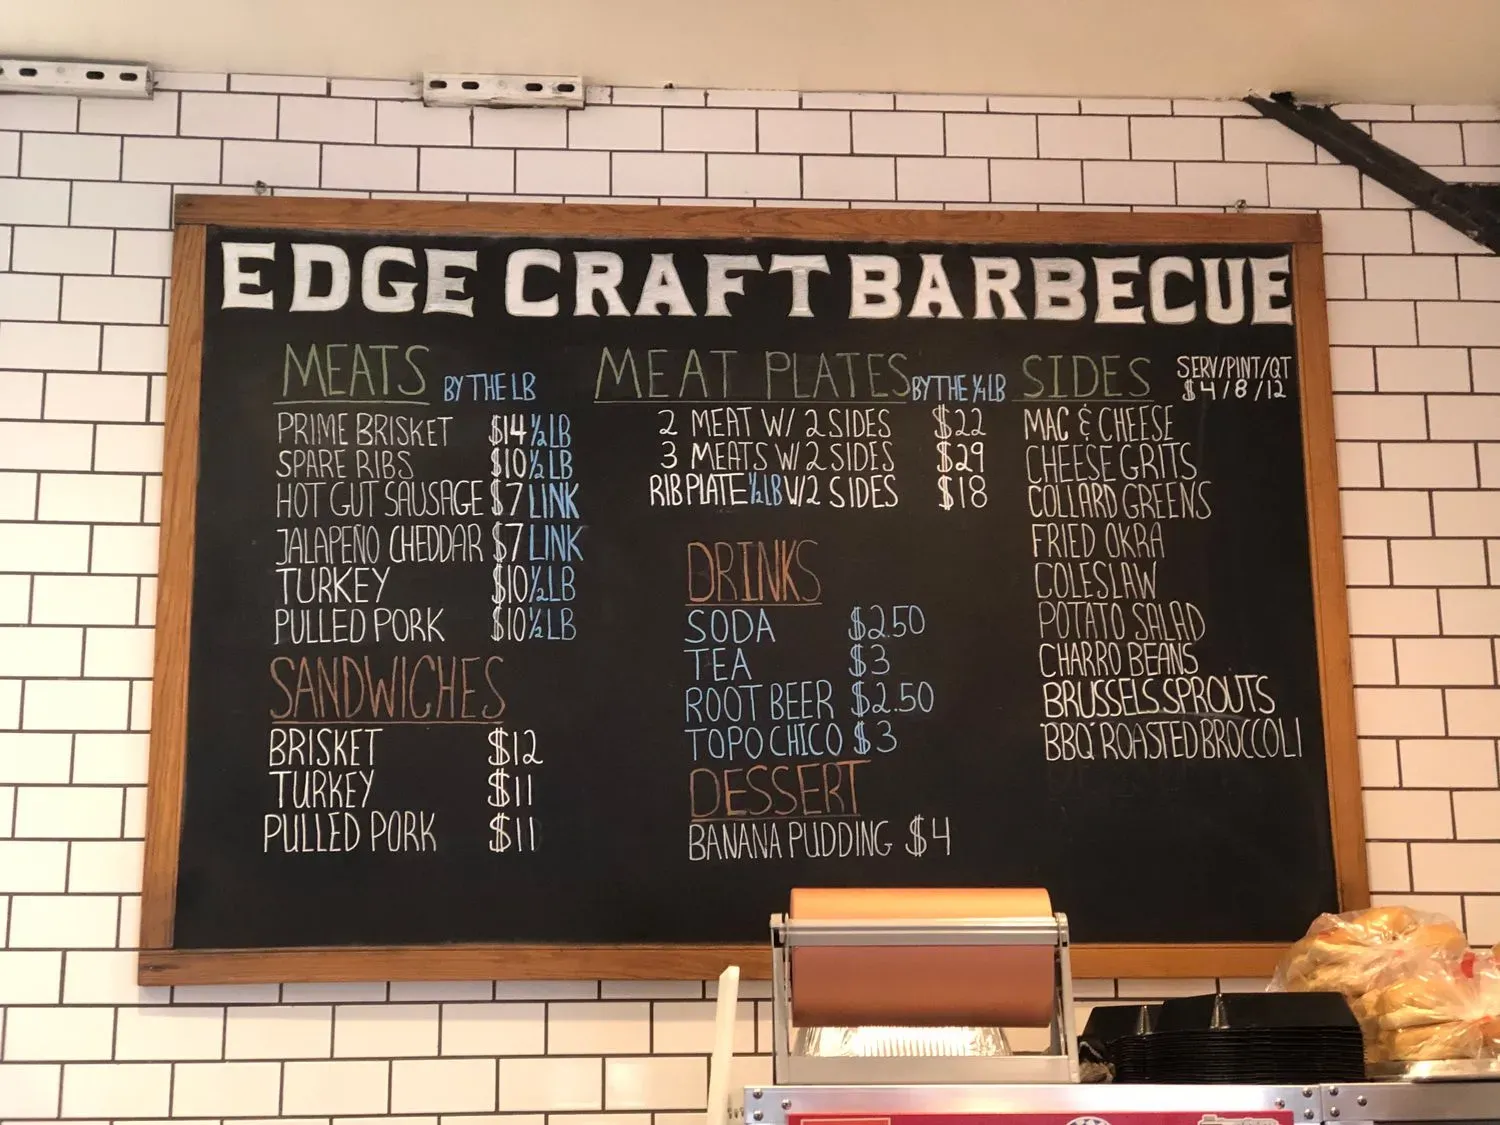 EDGE CRAFT BARBECUE
MEATS BY THE LB
PRIME BRISKET $14 ½ LB
SPARE RIBS $10 ½ LB
HOT GUT SAUSAGE $7 LINK
JALAPEÑO CHEDDAR $7 LINK
TURKEY $10 ½ LB
PULLED PORK $10 ½ LB
SANDWICHES
BRISKET $12
TURKEY $11
PULLED PORK $11
MEAT PLATES BY THE ¼ LB
2 MEAT W/ 2 SIDES $22
3 MEATS W/ 2 SIDES $29
RIB PLATE ½ LB W/2 SIDES $18
DRINKS
SODA $2.50
TEA $3
ROOT BEER $2.50
TOPO CHICO $3
DESSERT
BANANA PUDDING $4
SIDES SERV/PINT/QT
$4/8/12
MAC & CHEESE
CHEESE GRITS
COLLARD GREENS
FRIED OKRA
COLESLAW
POTATO SALAD
CHARRO BEANS
BRUSSELS SPROUTS
BBQ ROASTED BROCCOLI